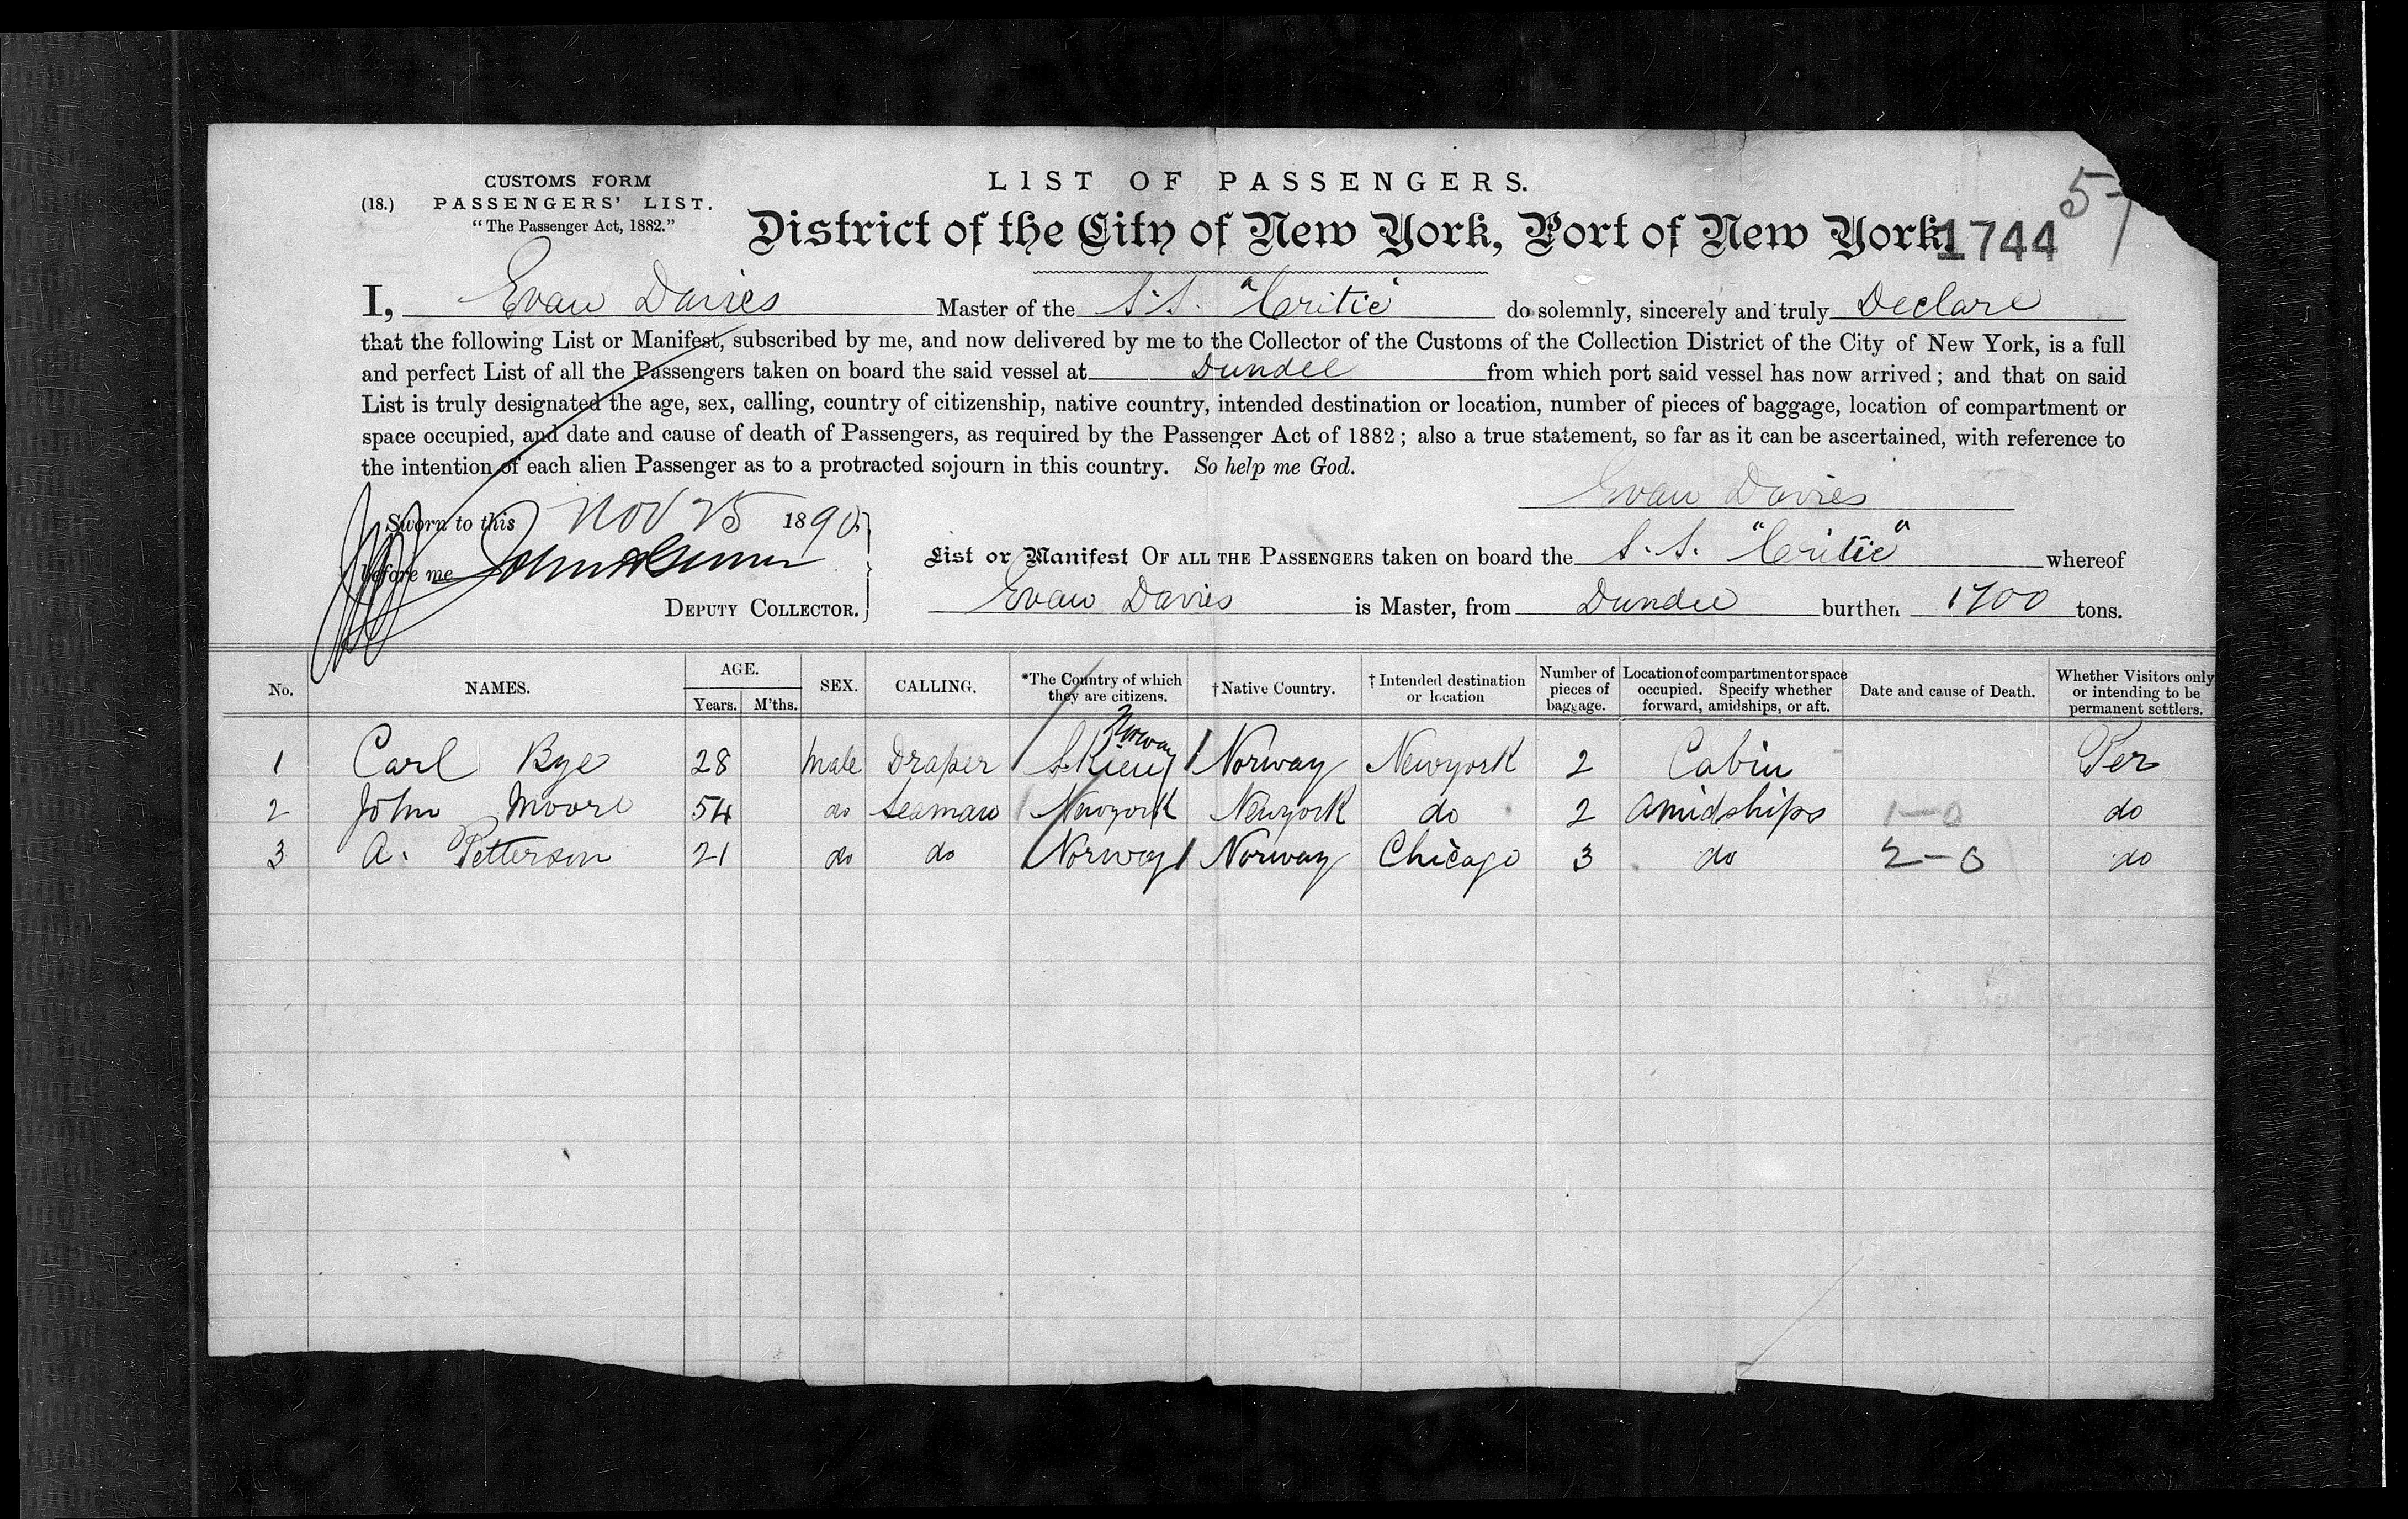 CUSTOMS FORM
(18.) PASSENGERS' LIST.
"The Passenger Act, 1882."
LIST OF PASSENGERS.
57
District of the City of New York, Port of New York.
1744
I, Evan Davies Master of the S.S. "Critic" do solemnly, sincerely and truly Declare
that the following List or Manifest, subscribed by me, and now delivered by me to the Collector of the Customs of the Collection District of the City of New York, is a full
and perfect List of all the Passengers taken on board the said vessel at Dundee from which port said vessel has now arrived; and that on said
List is truly designated the age, sex, calling, country of citizenship, native country, intended destination or location, number of pieces of baggage, location of compartment or
space occupied, and date and cause of death of Passengers, as required by the Passenger Act of 1882; also a true statement, so far as it can be ascertained, with reference to
the intention of each alien Passenger as to a protracted sojourn in this country. So help me God.
Evan Davies
Sworn to this Nov 25 1890.
before me
DEPUTY COLLECTOR.
List or Manifest OF ALL THE PASSENGERS taken on board the S.S. "Critic" whereof
Evan Davies is Master, from Dundee burthen 1700 tons.
No. NAMES. AGE. Years. M'ths. SEX. CALLING. *The Country of which they are citizens. †Native Country. †Intended destination or location Number of pieces of baggage. Location of compartment or space occupied. Specify whether forward, amidships, or aft. Date and cause of Death. Whether Visitors only or intending to be permanent settlers.
Norway
1 Carl Bye 28 Male Draper Skien Norway Newyork 2 Cabin Per
2 John Moore 54 do Seaman Newyork Newyork do 2 Amidships 1-0 do
3 A. Petterson 21 do do Norway Norway Chicago 3 do 2-0 do